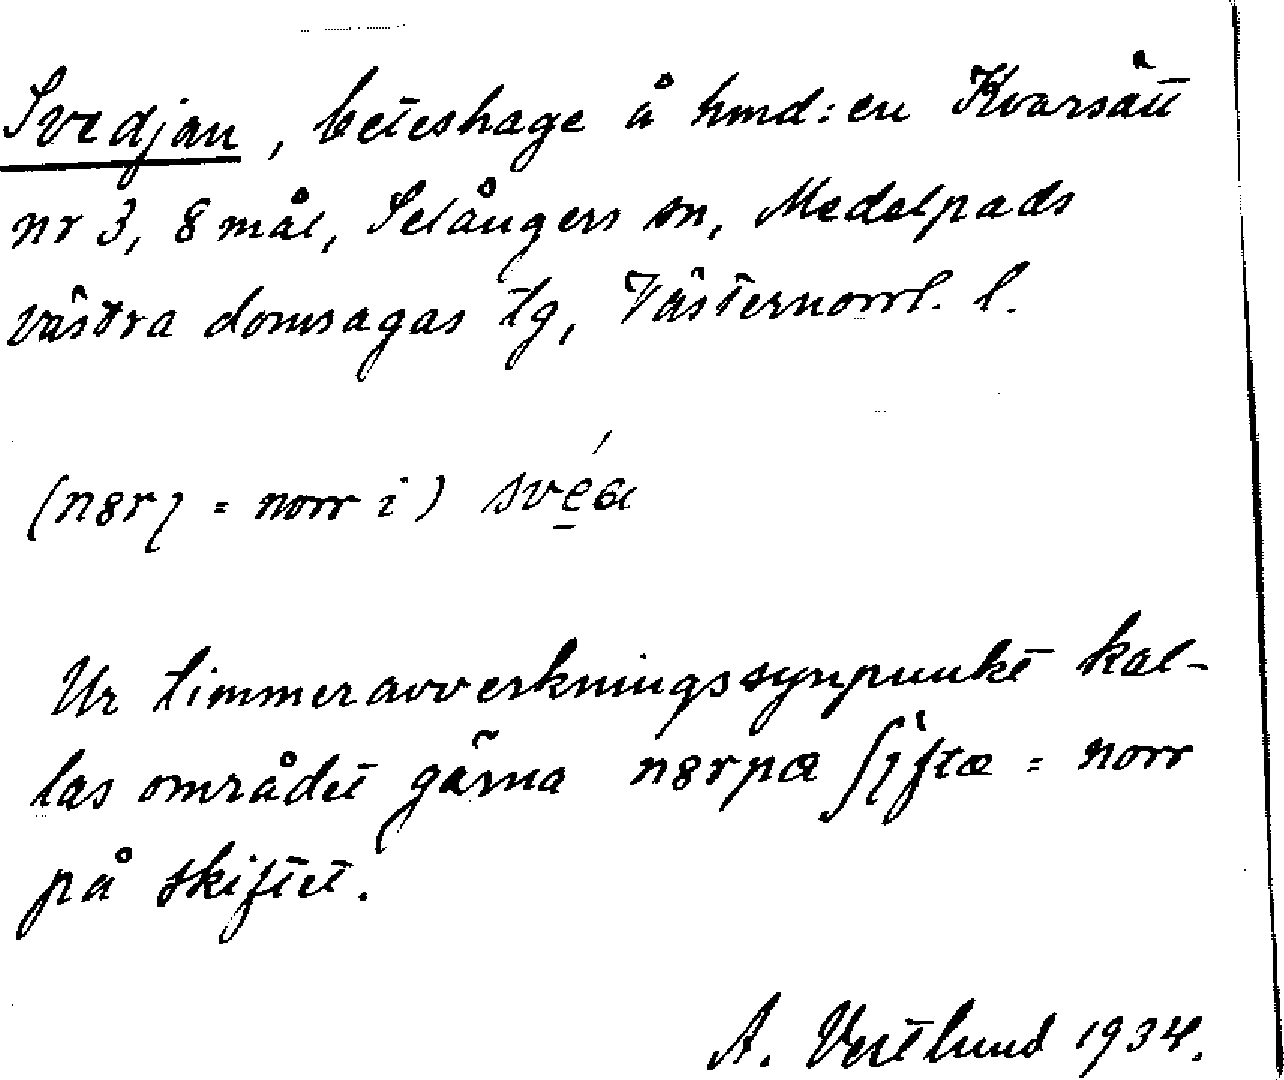 Svedjan, beteshage å hmd:en Kvarsätt
nr 3, 8 mål, Selångers sn, Medelpads
västra domsagas tg, Västernorrl. l.
(n8rı = norr i) své̱a
Ur timmeravverkningssynpunkt kal-
las området gärna n8rpæ ʃıftæ = norr
på skiftet.
A. Vestlund 1934.